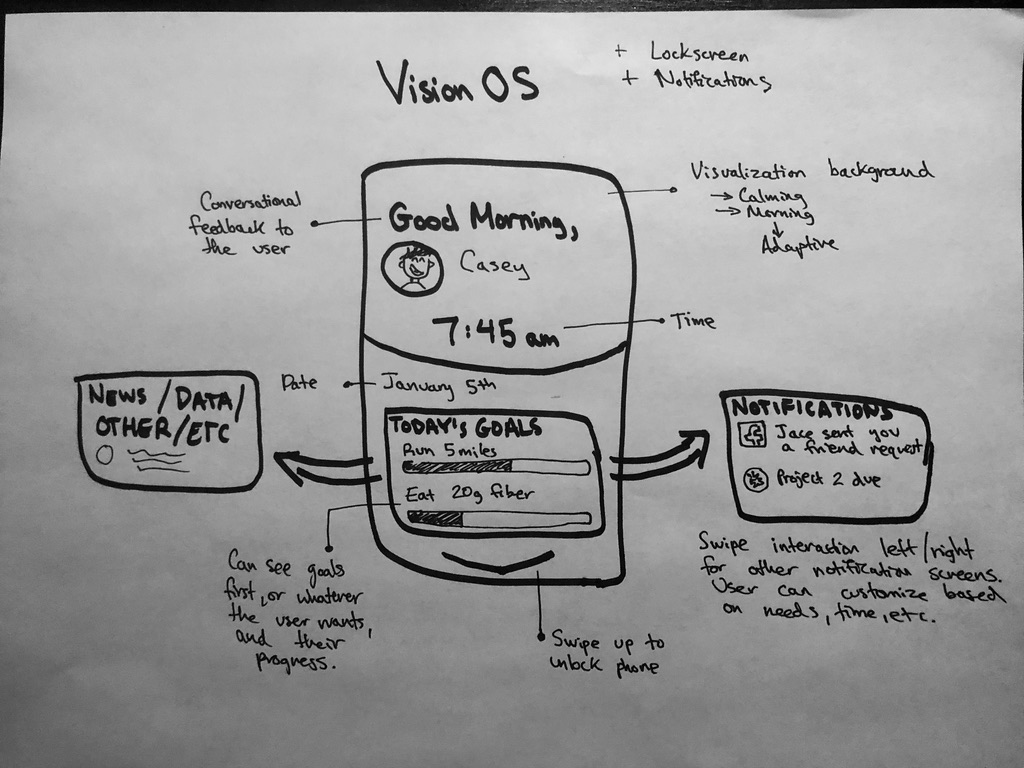 Vision OS
+ Lockscreen
+ Notifications
Conversational
feedback to
the user
Good Morning,
Casey
7:45 am
Visualization background
→ Calming
→ Morning
↓
Adaptive
Time
Date
January 5th
NEWS / DATA /
OTHER/ETC
TODAY'S GOALS
Run 5 miles
Eat 20g fiber
NOTIFICATIONS
Jace sent you
a friend request
Project 2 due
Can see goals
first, or whatever
the user wants,
and their
progress.
Swipe up to
unlock phone
Swipe interaction left/right
for other notification screens.
User can customize based
on needs, time, etc.